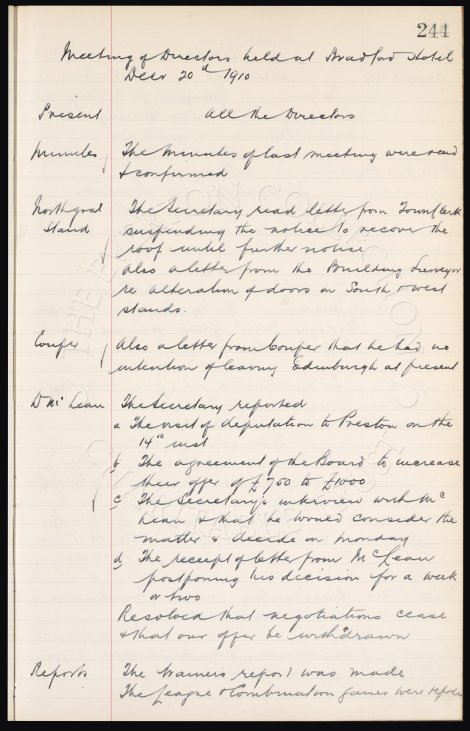 244
Meeting of Directors held at Bradford Hotel
Decr 20th 1910
Present All the Directors
Minutes The Minutes of last meeting were read
& confirmed
North goal The Secretary read letter from Town Clerk
Stand suspending the notice to recover the
roof until further notice
Also a letter from the Building Surveyor
re alteration of doors on South & West
stands.
Couper Also a letter from Couper that he had no
intention of leaving Edinburgh at present
D McLean The Secretary reported
a The visit of deputation to Preston on the
14th inst
b The agreement of the Board to increase
their offer of £750 to £1000
c The Secretary's interview with Mc
Lean & that he would consider the
matter & decide on Monday
d The receipt of letter from McLean
postponing his decision for a week
or two
Resolved that negotiations cease
& that our offer be withdrawn
Reports The trainers report was made
The League & Combination games were reported